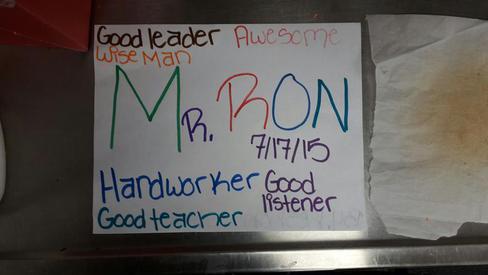 Good leader Awesome
Wise Man
MR. RON
7/17/15
Handworker Good
listener
Good teacher